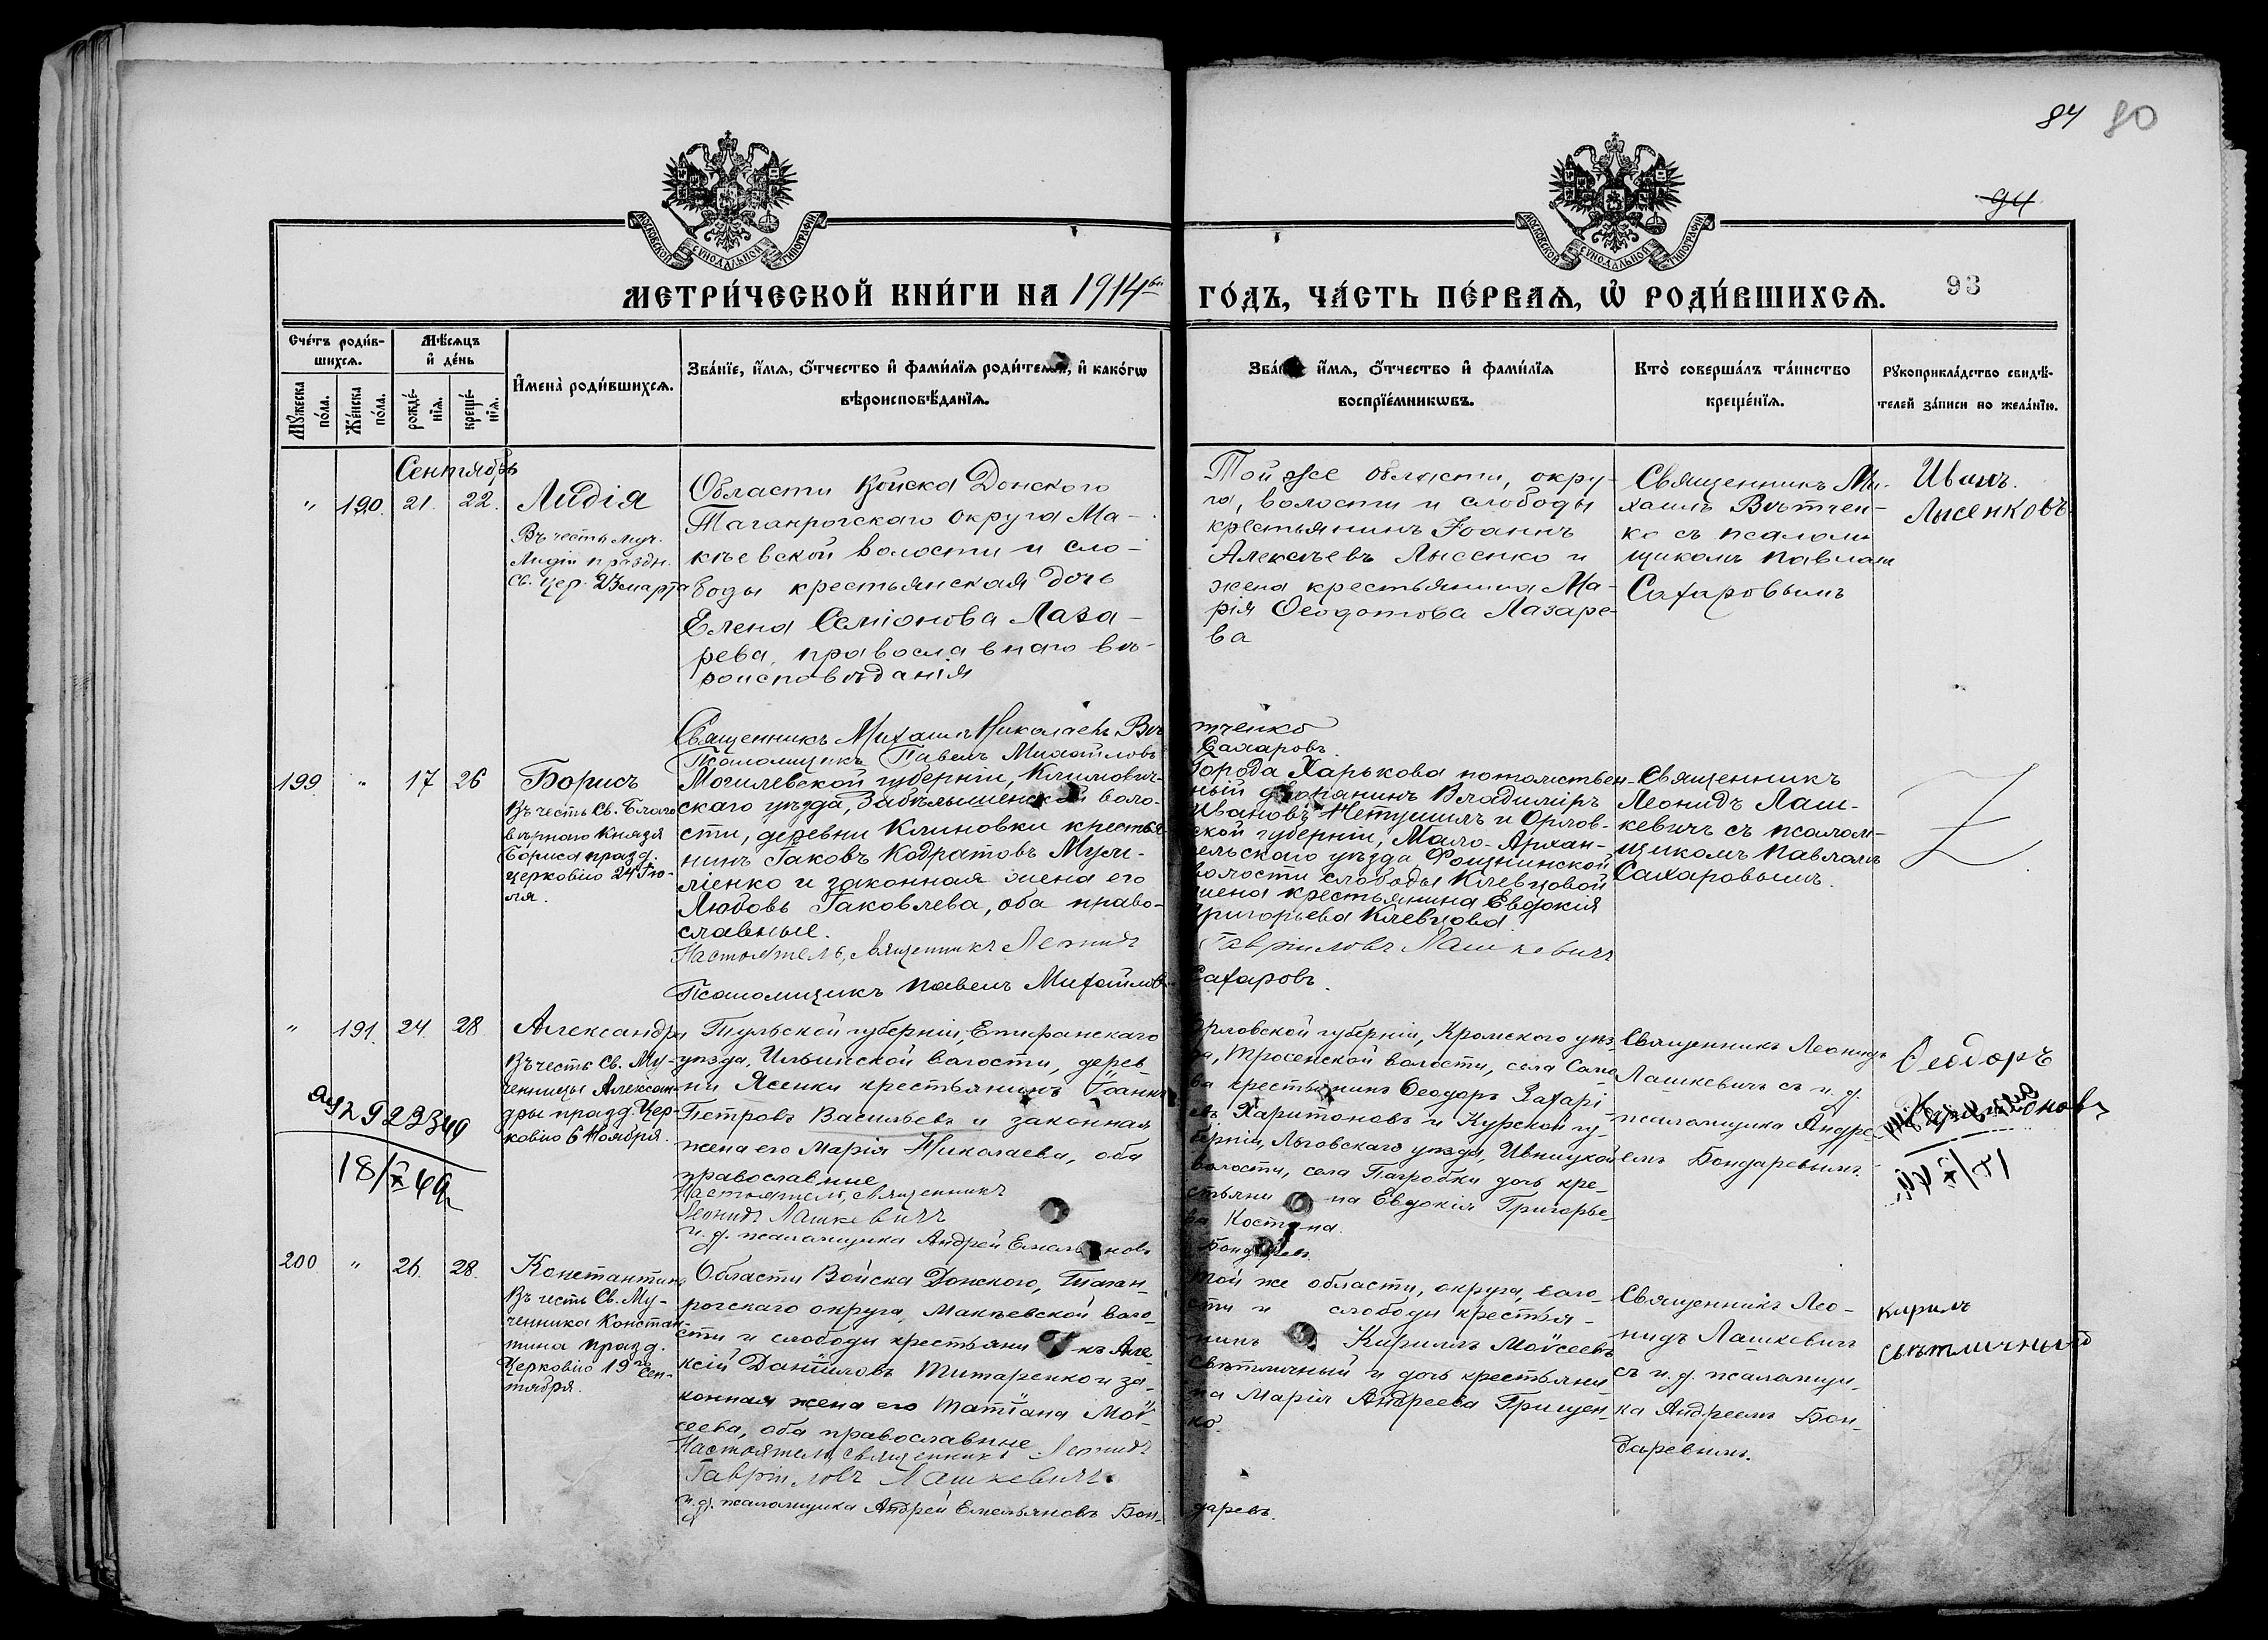 84 80
94
93
МОСКОВСКОЙ СѴНОДАЛЬНОЙ ТИПОГРАФІИ
МОСКОВСКОЙ СѴНОДАЛЬНОЙ ТИПОГРАФІИ
МЕТРИ́ЧЕСКОЙ КНИ́ГИ НА 1914ый ГО́ДЪ, ЧА́СТЬ ПЕ́РВАѦ, Ѡ҆ РОДИ́ВШИХСѦ.
Сче́тъ роди́в-
шихсѧ.
Мꙋ́жеска по́ла.
Же́нска по́ла.
Мѣ́сѧцъ
и҆ де́нь
рожде́-нїѧ.
креще́-нїѧ.
И҆мена̀ роди́вшихсѧ.
Зва́нїе, и҆́мѧ, ѻ҆́тчество и҆ фами́лїѧ роди́телей, и҆ како́гѡ
вѣроисповѣ́данїѧ.
Зва́нїе, и҆́мѧ, ѻ҆́тчество и҆ фами́лїѧ
воспрїе́мникѡвъ.
Кто̀ соверша́лъ та́инство
креще́нїѧ.
Рꙋкоприкла́дство свидѣ́-
телей за́писи по жела́нїю.
Сентябрь
" 190. 21. 22.
Лидія
Въ честь муч.
Лидіи праздн.
Св. Цер. 23 марта
Области Войска Донского
Таганрогскаго Округа Ма-
кѣевской волости и сло-
боды крестьянская дочь
Елена Семіонова Лаза-
рева, православнаго вѣ-
роисповѣданія
Той же области, окру-
га, волости и слободы
крестьянинъ Іоаннъ
Алексѣевъ Лысенко и
жена крестьянина Ма-
рія Ѳеодотова Лазаре-
ва
Священникъ Ми-
хаилъ Вѣтчен-
ко съ псалом-
щикомъ Павломъ
Сахаровымъ
Иванъ.
Лысенковъ
Священникъ Михаилъ Николаевъ Вѣтченко
Псаломщикъ Павелъ Михайловъ Сахаровъ.
199. " 17 26
Борисъ
Въ честь Св. Благо-
вѣрнаго Князя
Бориса празд.
церковію 24 Ію-
ля.
Могилевской губерніи, Климович-
скаго уѣзда, Забѣлышенской воло-
сти, деревни Клиновки крестья-
нинъ Іаковъ Кодратовъ
и законная жена его
Любовь Іаковлева, оба право-
славные.
Города Харькова потомствен-
ный дворянинъ Владиміръ
Ивановъ Нетушилъ и Орлов-
ской губерніи, Мало-Архан-
гельскаго уѣзда,
волости слободы Клевцовой
жена крестьянина Евдокія
Григорьева Клевцова.
Священникъ
Леонидъ Лаш-
кевичъ съ псалом-
щикомъ Павломъ
Сахаровымъ.
Настоятель, священникъ Леонидъ Гавріиловъ Лашкевичъ
Псаломщикъ Павелъ Михайловъ Сахаровъ.
" 191. 24. 28
Александра
Въ честь Св. Му-
ченицы Алексан-
дры празд. Цер-
ковію 6 Ноября.
Тульской губерніи, Епифанскаго
уѣзда, Ильинской волости, дерев-
ни Ясенки крестьянинъ Іоаннъ
Петровъ Васильевъ и законная
жена его Марія Николаева, оба
православные
Орловской губерніи, Кромского уѣз-
да, Тросенской волости, села
крестьянинъ Ѳеодоръ Захарі-
евъ Харитоновъ и Курской гу-
берніи, Льговскаго уѣзда, Ивницкой
волости, села Погребки дочь кре-
стьянина Евдокія Григорье-
ва Костина.
Священникъ Леонидъ
Лашкевичъ съ и. д.
псаломщика Андре-
емъ Бондаревымъ.
Ѳеодоръ
Харитоновъ
18/X 49
Настоятель, священникъ
Леонидъ Лашкевичъ
и. д. псаломщика Андрей Емельяновъ Бондаревъ.
200 " 26. 28.
Константинъ
Въ честь Св. Му-
ченика Констан-
тина празд.
Церковію 19го Сен-
тября.
Области Войска Донского, Таган-
рогскаго округа, Макѣевской воло-
сти и слободы крестьянинъ Але-
ксій Даніиловъ Титаренко и за-
конная жена его Татіана Мой-
сеева, оба православные
Той же области, округа, воло-
сти и слободы крестья-
нинъ Кириллъ Мойсеевъ
Свѣтличный и дочь крестьяни-
на Марія Андреева Грищен-
ко.
Священникъ Лео-
нидъ Лашкевичъ
съ и. д. псаломщи-
ка Андреемъ Бон-
даревымъ.
Кирилъ
Свѣтличный
Настоятель, священникъ Леонидъ
Гавріиловъ Лашкевичъ.
и. д. псаломщика Андрей Емельяновъ Бондаревъ.